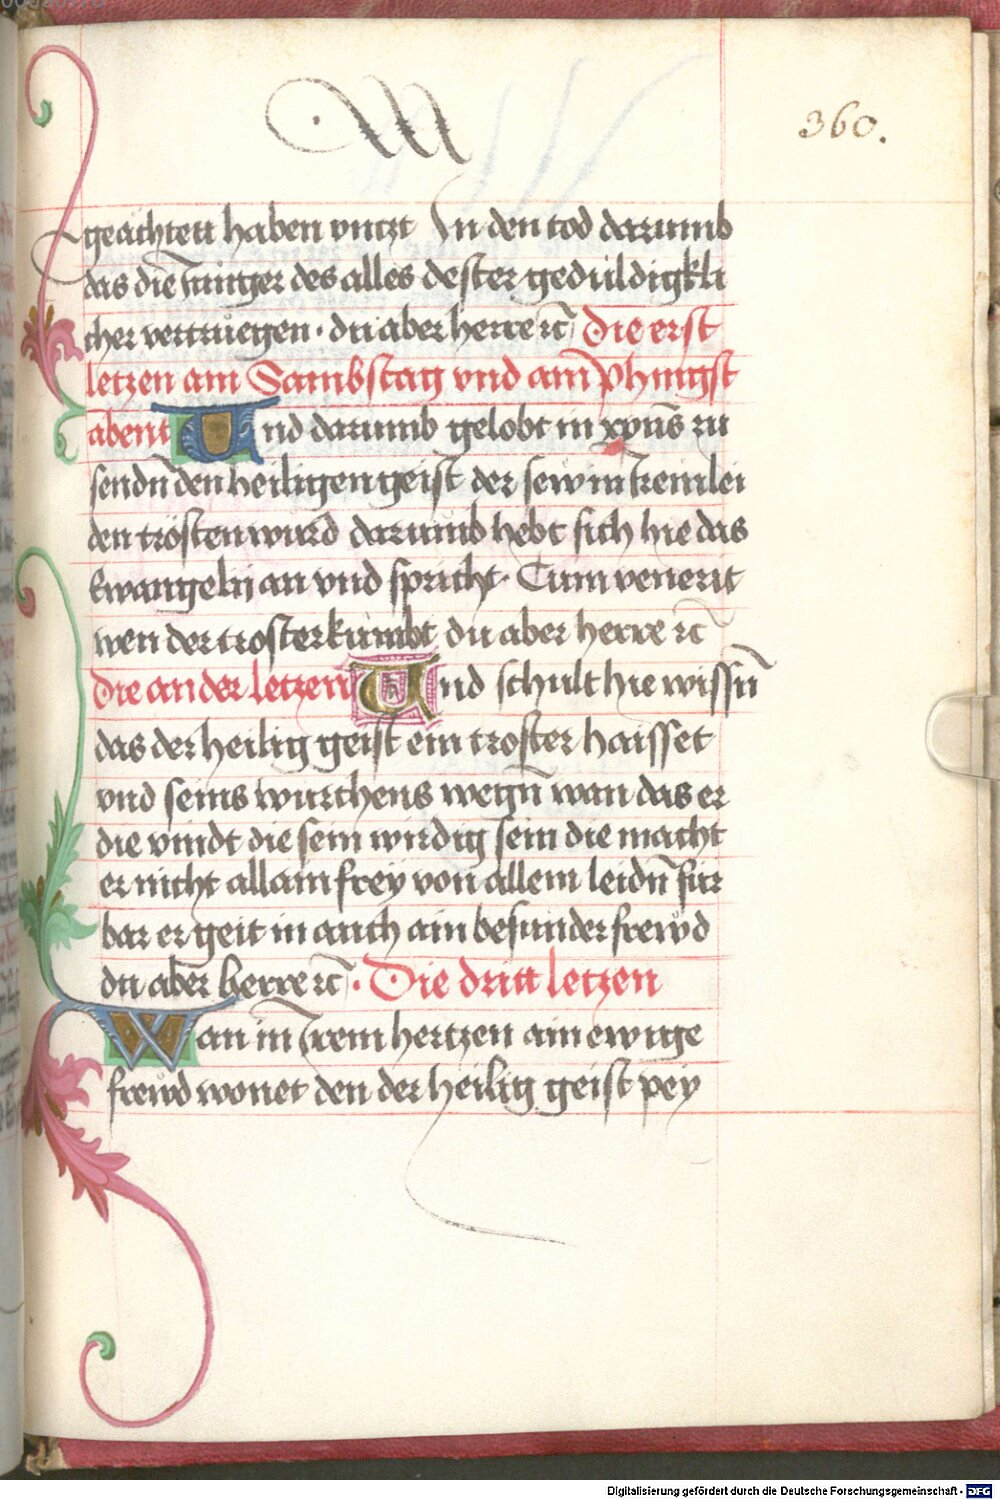 360.
geachtett haben vnczt In den tod darumb
das die Iunger des alles dester geduldigkli
cher vertruegen · du aber herre ꝛc̄ Die erst
letzen am Sambstag vnd am phingst
abent Und darumb gelobt in xp̄us zu
sendn̄ den heiligen geist der sew in Irem lei
den trösten wurd darumb hebt sich hie das
Ewangelij an vnd spricht · Cum venerit
wen der troster kumbt du aber herre ꝛc̄
Die ander letzen Und schullt hie wissn̄
das der heilig geist ein troster haisset
vnd seins wurchens wegn̄ wan das er
die vindt die sein wirdig sein die macht
er nicht allain frey von allem leidn̄ für
bar er geit in auch ain besunder frewd
du aber herre ꝛc̄ · Die dritt letzen
Wan in Irem hertzen ain ewige
frewd wonet den der heilig geist pey
Digitalisierung gefördert durch die Deutsche Forschungsgemeinschaft - DFG